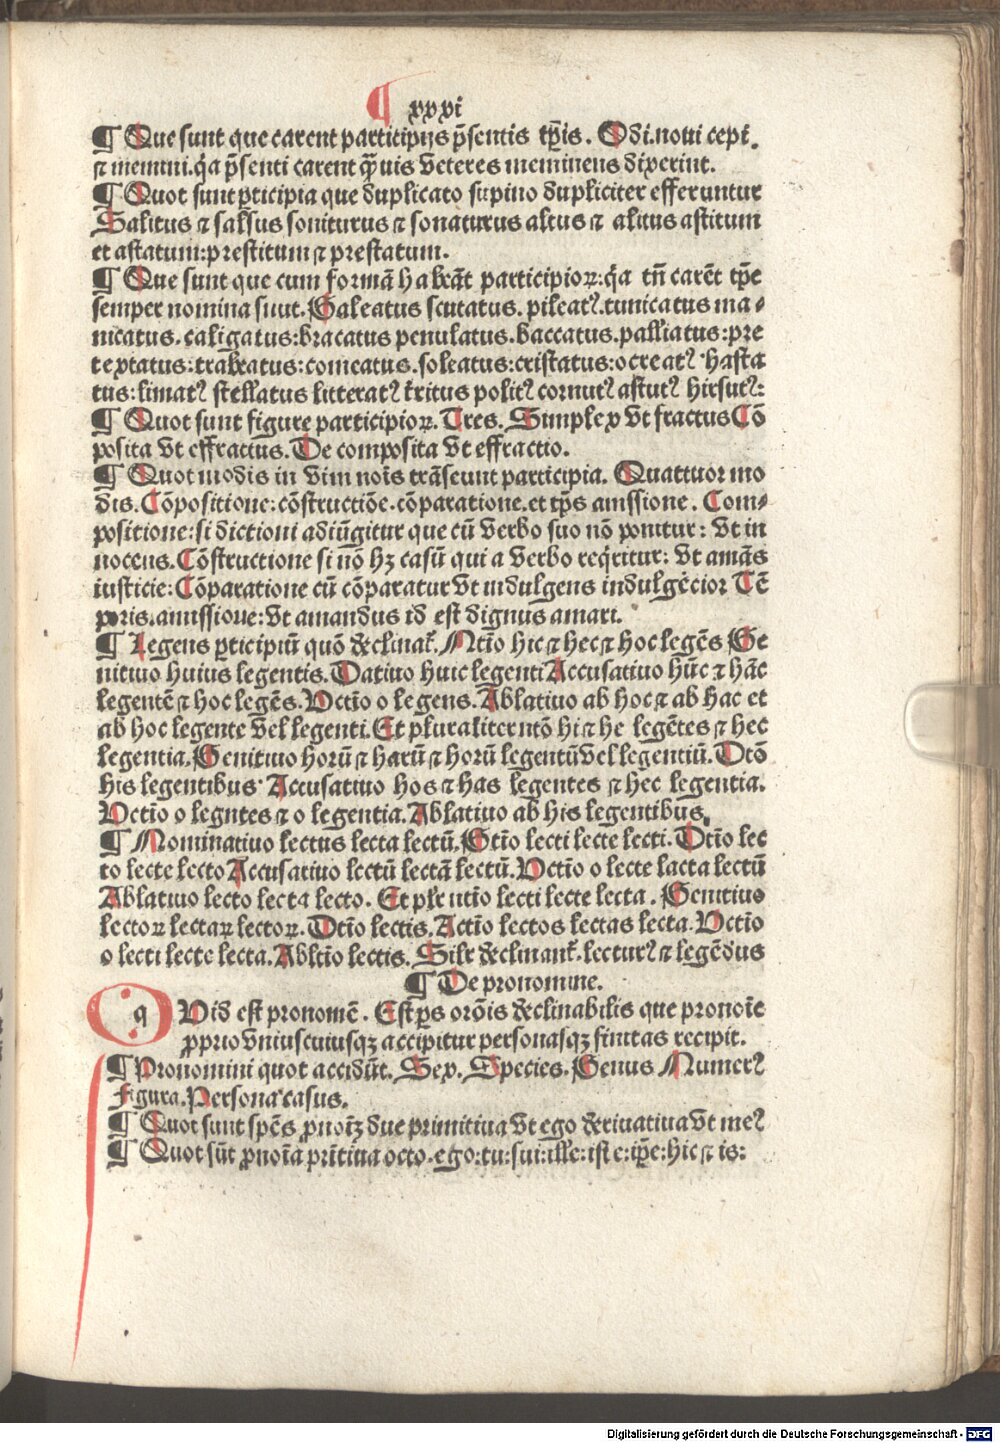 ¶ xxxi
¶ Que sunt que carent participijs p̄sentis tp̄is. Odi.noui cepi.
⁊ memini.q̇a p̄senti carent q̄uis veteres meminens dixerint.
¶ Quot sunt ꝑticipia que duplicato supino dupliciter efferuntur
Salitus ⁊ salsus soniturus ⁊ sonaturus altus ⁊ alitus astitum
et astatum:prestitum ⁊ prestatum.
¶ Que sunt que cum formā habeāt participioꝝ:q̇a tn̄ carēt tp̄e
semper nomina sunt. Galeatus scutatus. pileatꝰ.tunicatus ma⸗
nicatus. caligatus:bracatus penulatus.baccatus.palliatus:pre
textatus:trabeatus:comcatus.soleatus:cristatus:ocreatꝰ.hasta
tus:limatꝰ stellatus litteratꝰ t̄ritus politꝰ cornutꝰ astutꝰ hirsutꝰ:
¶ Quot sunt figure participioꝝ. Tres. Simplex vt fractus Cō
posita vt effractus. De composita vt effractio.
¶ Quot modis in vim nois̄ trāseunt participia. Quattuor mo
dis. Cōpositione:cōstructiōe.cōparatione.et tp̄s amissione. Com⸗
positione:si dictioni adiūgitur que cū verbo suo nō ponitur: vt in
nocens.Cōstructione si nō hꝫ casū qui a verbo req̇ritur: vt amās
iusticie:Cōparatione cū cōparatur vt indulgens indulgēcior Tē
poris.amissione:vt amandus id est dignus amari.
¶ Legens ꝑticipiū quō declinat̄. Ntīo hic ⁊ hec ⁊ hoc legēs Ge
nitiuo huius legentis. Datiuo huic legenti Accusatiuo hūc ⁊ hāc
legentē ⁊ hoc legēs. Vctīo o legens. Ablatiuo ab hoc ⁊ ab hac et
ab hoc legente vel legenti. Et pluraliter ntō hi ⁊ he legētes ⁊ hec
legentia. Genitiuo horū ⁊ harū ⁊ horū legentū vel legentiū. Dtō
his legentibus. Accusatiuo hos ⁊ has legentes ⁊ hec legentia.
Vctīo o legntes ⁊ o legentia. Ablatiuo ab his legentibus.
¶ Nominatiuo lectus lecta lectū. Gtīo lecti lecte lecti. Dtīo lec
to lecte lecto Accusatiuo lectū lectā lectū. Vctīo o lecte lacta lectū
Ablatiuo lecto lecta lecto. Et plr̄ ntīo lecti lecte lecta. Genitiuo
lectoꝝ lectaꝝ lectoꝝ. Dtīo lectis. Actīo lectos lectas lecta. Vctīo
o lecti lecte lecta. Abltīo lectis. Silr̄ declinant̄. lecturꝰ ⁊ legēdus
¶ De pronomine.
QVid est pronomē. Est ꝑs orōis declinabilis que pronoīe
ꝓprio vniuscuiusqꝫ accipitur personasqꝫ finitas recipit.
¶ Pronomini quot accidūt. Sex. Species. Genus Numerꝰ
Figura. Persona casus.
¶ Quot sunt spēs ꝓnoīꝫ due primitiua vt ego deriuatiua vt meꝰ
¶ Quot sūt ꝓnoīa prīitiua octo.ego:tu:sui:ille:iste:ip̄e:hic ⁊ is:
Digitalisierung gefördert durch die Deutsche Forschungsgemeinschaft - DFG